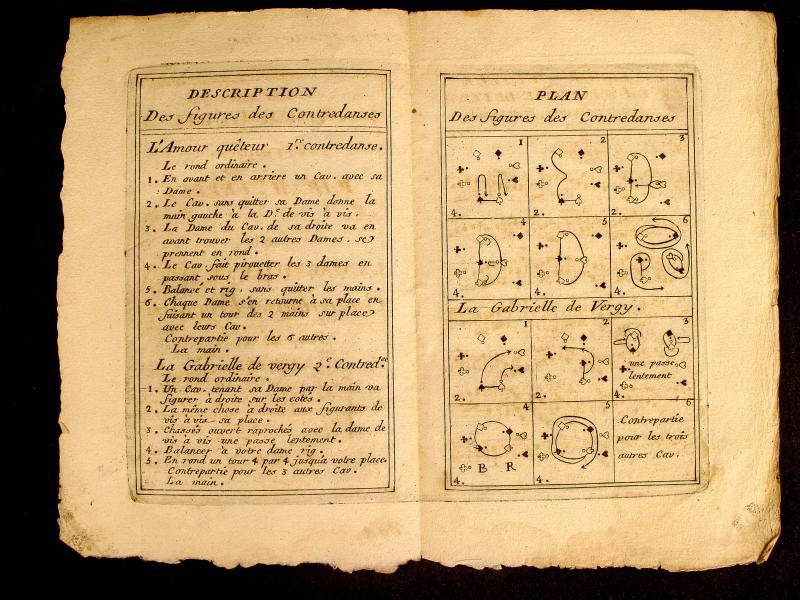 DESCRIPTION
Des figures des Contredanses
L'Amour quêteur 1.re contredanse.
Le rond ordinaire.
1. En avant et en arriere un Cav. avec sa
Dame.
2. Le Cav. sans quitter sa Dame donne la
main gauche à la D.e de vis à vis.
3. La Dame du Cav. de sa droite va en
avant trouver les 2 autres Dames, se
prennent en rond.
4. Le Cav. fait pirouetter les 3 dames en
passant sous le bras.
5. Balancé et rig. sans quitter les mains.
6. Chaque Dame s'en retourne à sa place en
faisant un tour des 2 mains sur place
avec leurs Cav.
Contrepartie pour les 6 autres.
La main.
La Gabrielle de vergy 2.e Contred.se
Le rond ordinaire.
1. Un Cav. tenant sa Dame par la main va
figurer à droite sur les cotes.
2. La même chose à droite aux figurants de
vis à vis sa place.
3. Chassés ouvert raprochés avec la dame de
vis à vis une passe lentement.
4. Balancer à votre dame rig.
5. En rond un tour 4 par 4 jusqu'a votre place.
Contrepartie pour les 3 autres Cav.
La main.
PLAN
Des figures des Contredanses
1
4.
2
2.
3
2.
4
4.
5
4.
6
4.
La Gabrielle de Vergy.
1
2.
2
2.
3
une passe
lentement
4.
4
B R
4.
5
4.
6
Contrepartie
pour les trois
autres Cav.